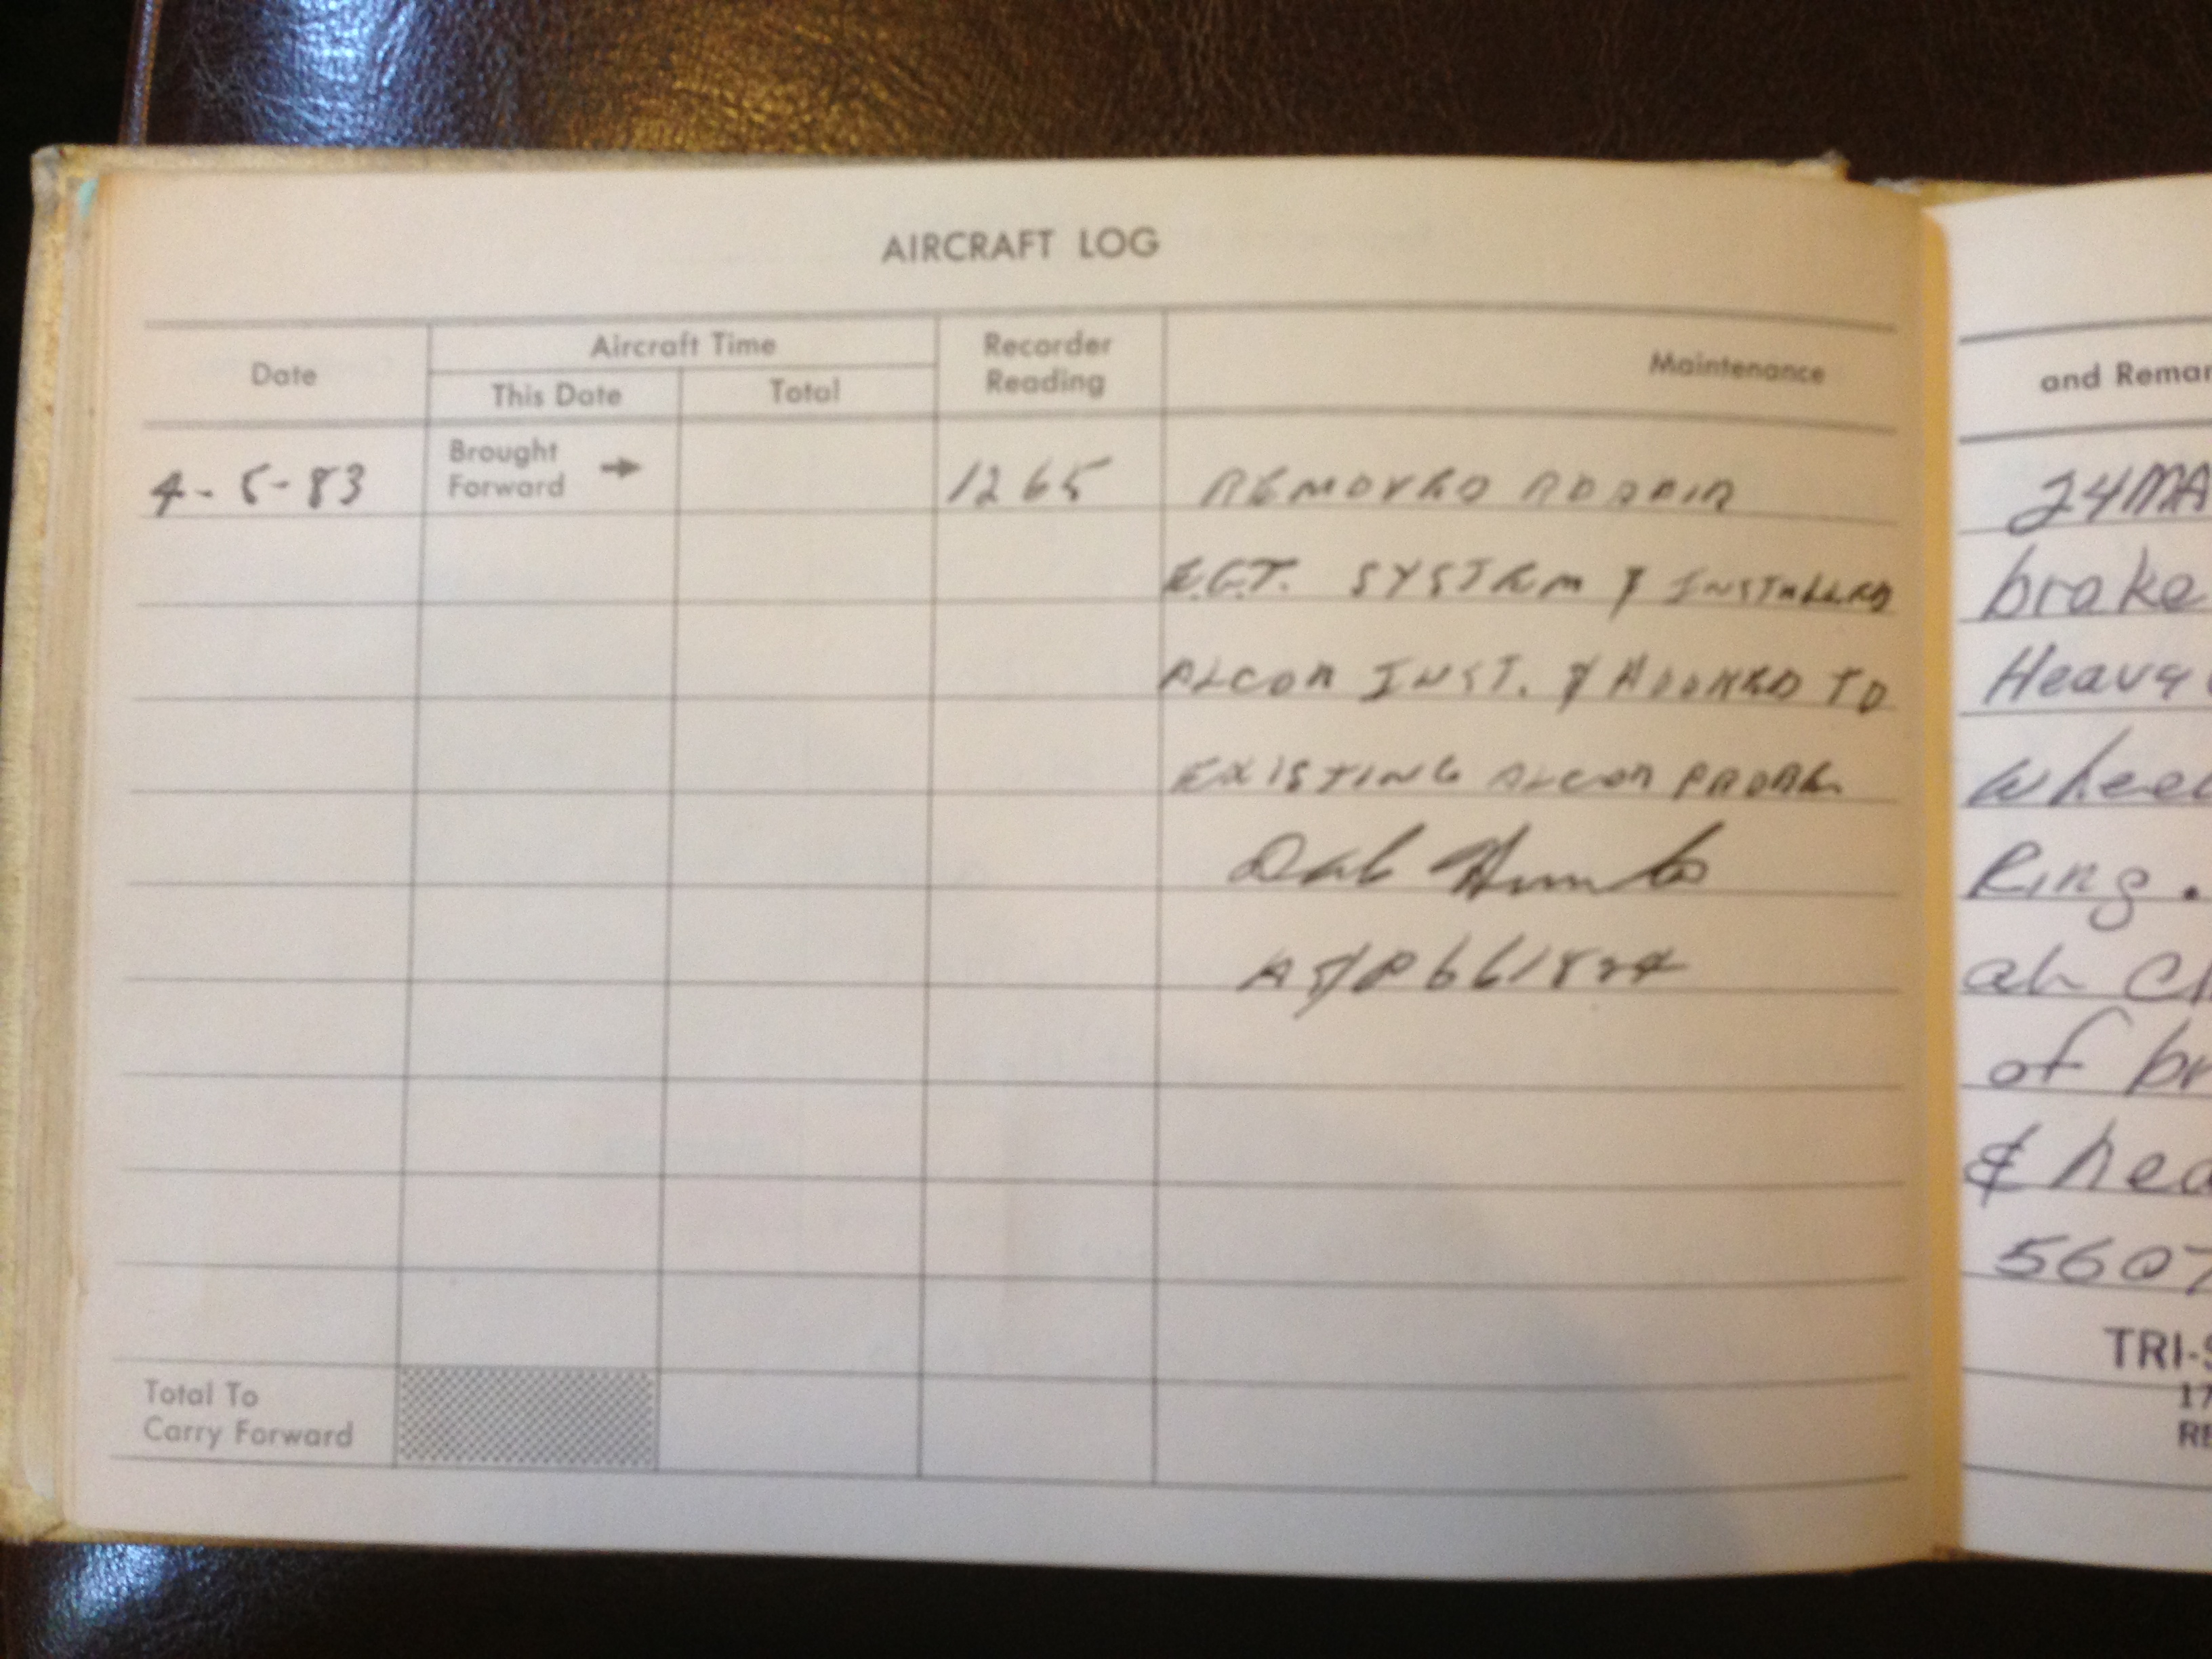 AIRCRAFT LOG
Date
Aircraft Time
This Date
Total
Recorder
Reading
Maintenance
4-5-83
Brought
Forward
1265
REMOVED
E.G.T. SYSTEM & INSTALLED
ALCOR INST. & HOOKED TO
EXISTING ALCOR PROBE
Total To
Carry Forward
and Remar
24MA
brake
Heavy
wheel
Ring.
of br
& hea
5607
TRI-S
17
RE